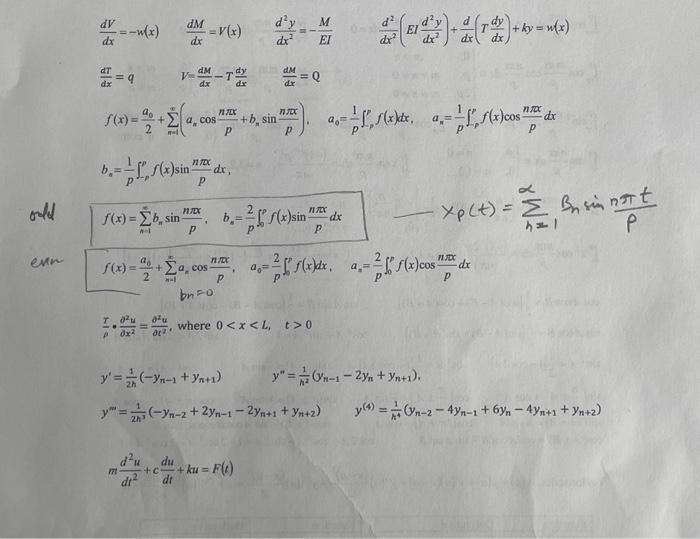 dV/dx = -w(x)    dM/dx = V(x)    d²y/dx² = -M/EI    d²/dx² (EI d²y/dx²) + d/dx (T dy/dx) + ky = w(x)
dT/dx = q    V = dM/dx - T dy/dx    dM/dx = Q
f(x) = a₀/2 + ∑_{n=1}^{∞} (aₙ cos nπx/p + bₙ sin nπx/p),    a₀ = 1/p ∫_{-p}^{p} f(x)dx,    aₙ = 1/p ∫_{-p}^{p} f(x)cos nπx/p dx
bₙ = 1/p ∫_{-p}^{p} f(x)sin nπx/p dx,
odd    f(x) = ∑_{n=1}^{∞} bₙ sin nπx/p,    bₙ = 2/p ∫_{0}^{p} f(x)sin nπx/p dx    — xp(t) = ∑_{n=1}^{∞} Bn sin nπt/p
even    f(x) = a₀/2 + ∑_{n=1}^{∞} aₙ cos nπx/p,    a₀ = 2/p ∫_{0}^{p} f(x)dx,    aₙ = 2/p ∫_{0}^{p} f(x)cos nπx/p dx
bn=0
T/ρ • ∂²u/∂x² = ∂²u/∂t², where 0 < x < L,    t > 0
y' = 1/2h (-yₙ₋₁ + yₙ₊₁)    y" = 1/h² (yₙ₋₁ - 2yₙ + yₙ₊₁),
y''' = 1/2h³ (-yₙ₋₂ + 2yₙ₋₁ - 2yₙ₊₁ + yₙ₊₂)    y⁽⁴⁾ = 1/h⁴ (yₙ₋₂ - 4yₙ₋₁ + 6yₙ - 4yₙ₊₁ + yₙ₊₂)
m d²u/dt² + c du/dt + ku = F(t)